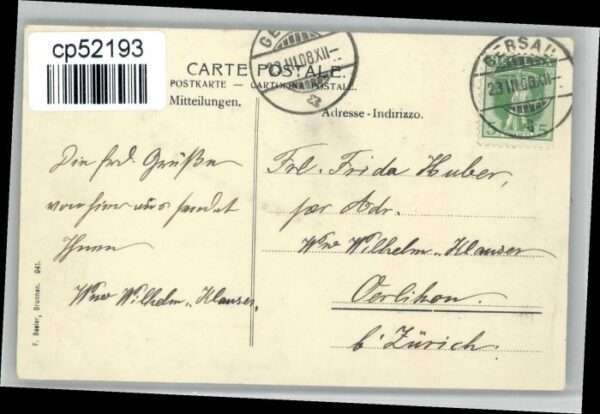 cp52193
CARTE POSTALE.
POSTKARTE — CARTOLINA POSTALE.
Mitteilungen.
Adresse - Indirizzo.
GERSAU
23.III.08.XII-
GERSAU
23.III.08.XII-
5 5
Die frdl. Grüße
von hier aus sendet
Ihnen
Wwe Wilhelm-Klauser,
Frl. Frida Huber,
per Adr.
Wwe Wilhelm-Klauser
Oerlikon.
b/ Zürich.
Brunnen. 941.